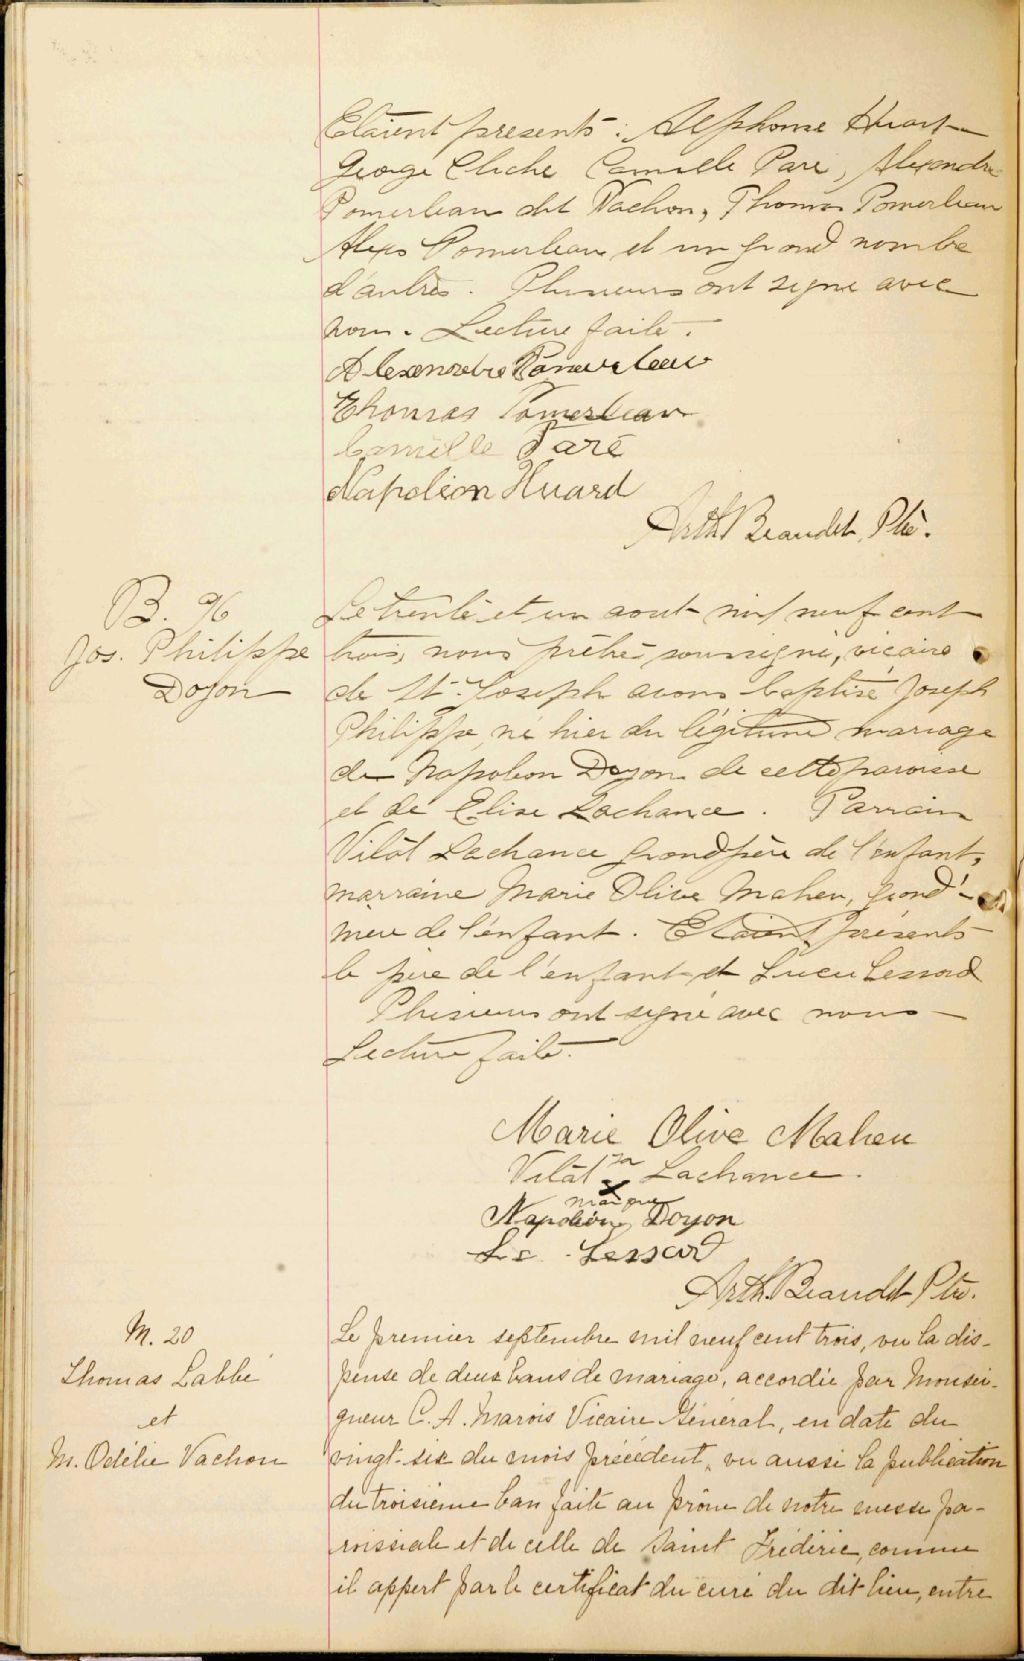 Etaient presents : Alphonse Huart
George Cliche Camille Paré, Alexandre
Pomerleau dit Vachon, Thomas Pomerleau
Alexis Pomerleau et un grand nombre
d'autres. Plusieurs ont signé avec
nous. Lecture faite.
Alexendre Pomerleau
Thomas Pomerleau
Camille Paré
Napoléon Huard
Arth Beaudet, Ptre.
B. 96
Jos. Philippe
Doyon
Le trente et un aout mil neuf cent
trois, nous prêtre soussigné, vicaire
de St. Joseph avons baptisé Joseph
Philippe, né hier du légitime mariage
de Napoléon Doyon de cette paroisse
et de Elise Lachance. Parrain
Vilàt Lachance grandpère de l'enfant,
marraine Marie Olive Maheu, grand'-
mère de l'enfant. Etaient présents
le père de l'enfant et Lucien Lessard
Plusieurs ont signé avec nous
Lecture faite.
Marie Olive Maheu
Vilàt sa x Lachance.
marque
Napoléon Doyon
Lessard
Arth. Beaudet Ptre.
M. 20
Thomas Labbé
et
M. Odélie Vachon
Le premier septembre mil neuf cent trois, vu la dis-
pense de deux bans de mariage, accordée par Monsei-
gneur C. A. Marois Vicaire Général, en date du
vingt-six du mois précédent, vu aussi la publication
du troisième ban faite au prône de notre messe pa-
roissiale et de celle de Saint Frédéric, comme
il appert par le certificat du curé du dit lieu, entre